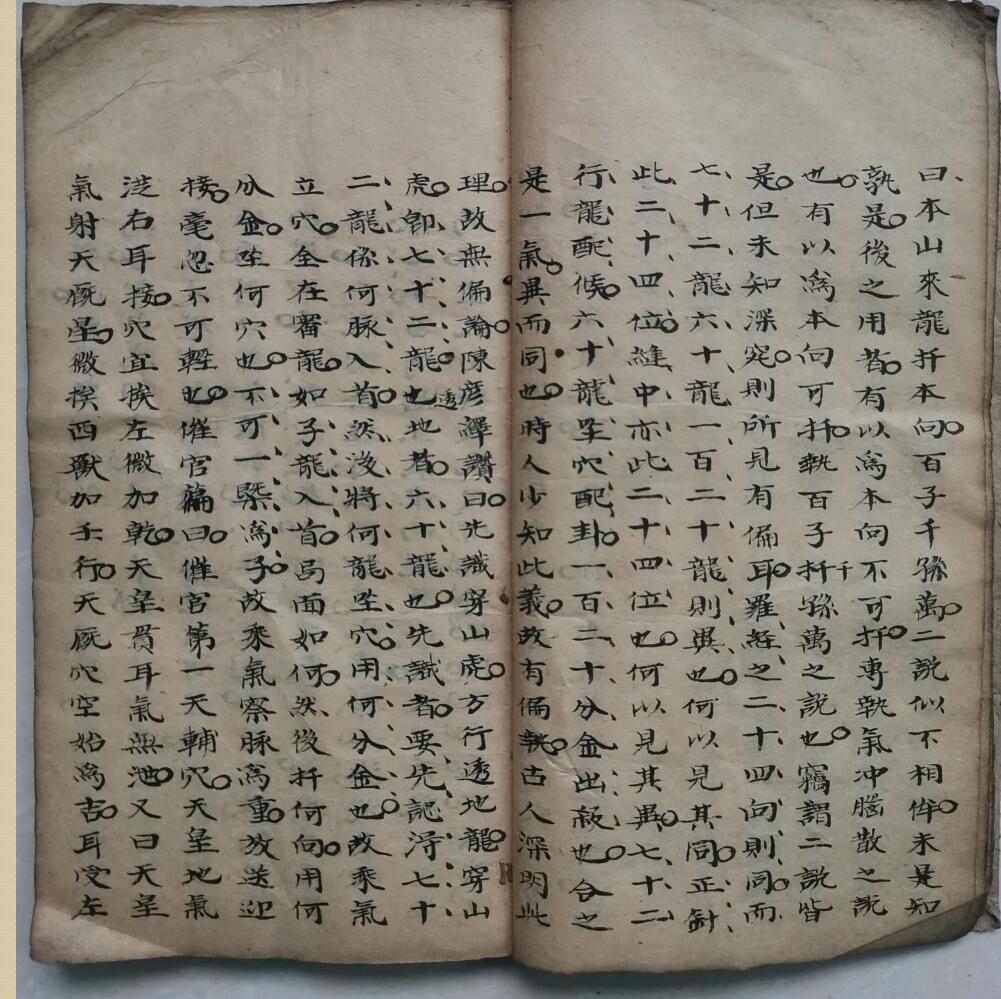 曰本山來龍扦本向百子千孫萬二説似不相侔未是知
孰是後之用者有以為本向不可扦專執氣冲腦散之説
也有以為本向可扦執百子扦千孫萬之説也竊謂二説皆
是但未知深究則所見有偏耳羅経之二十四向則同而
七十二龍六十龍一百二十龍則異也何以見其同正針
此二十四位縫中亦此二十四位也何以見其異七十二
行龍配候六十龍坐穴配卦一百二十分金出殺也合之
是一氣異而同也時人少知此義故有偏執古人深明此
理故無偏論陳彦繹讚曰先識穿山虎方行透地龍穿山
虎即七十二龍也透地者六十龍也先識者要先認得七十
二龍係何脉入首然後將何龍坐穴用何分金也故乘氣
立穴全在審龍如子龍入首局面如何然後扦何向用何
分金坐何穴也不可一槩為子故乘氣察脉為重放送迎
接毫忽不可輕也催官篇曰催官第一天輔穴天皇地氣
従右耳接穴宜挨左微加乾天皇貫耳氣無洩又曰天皇
氣射天厩星微挨西獸加壬行天厩穴空始為吉耳受左